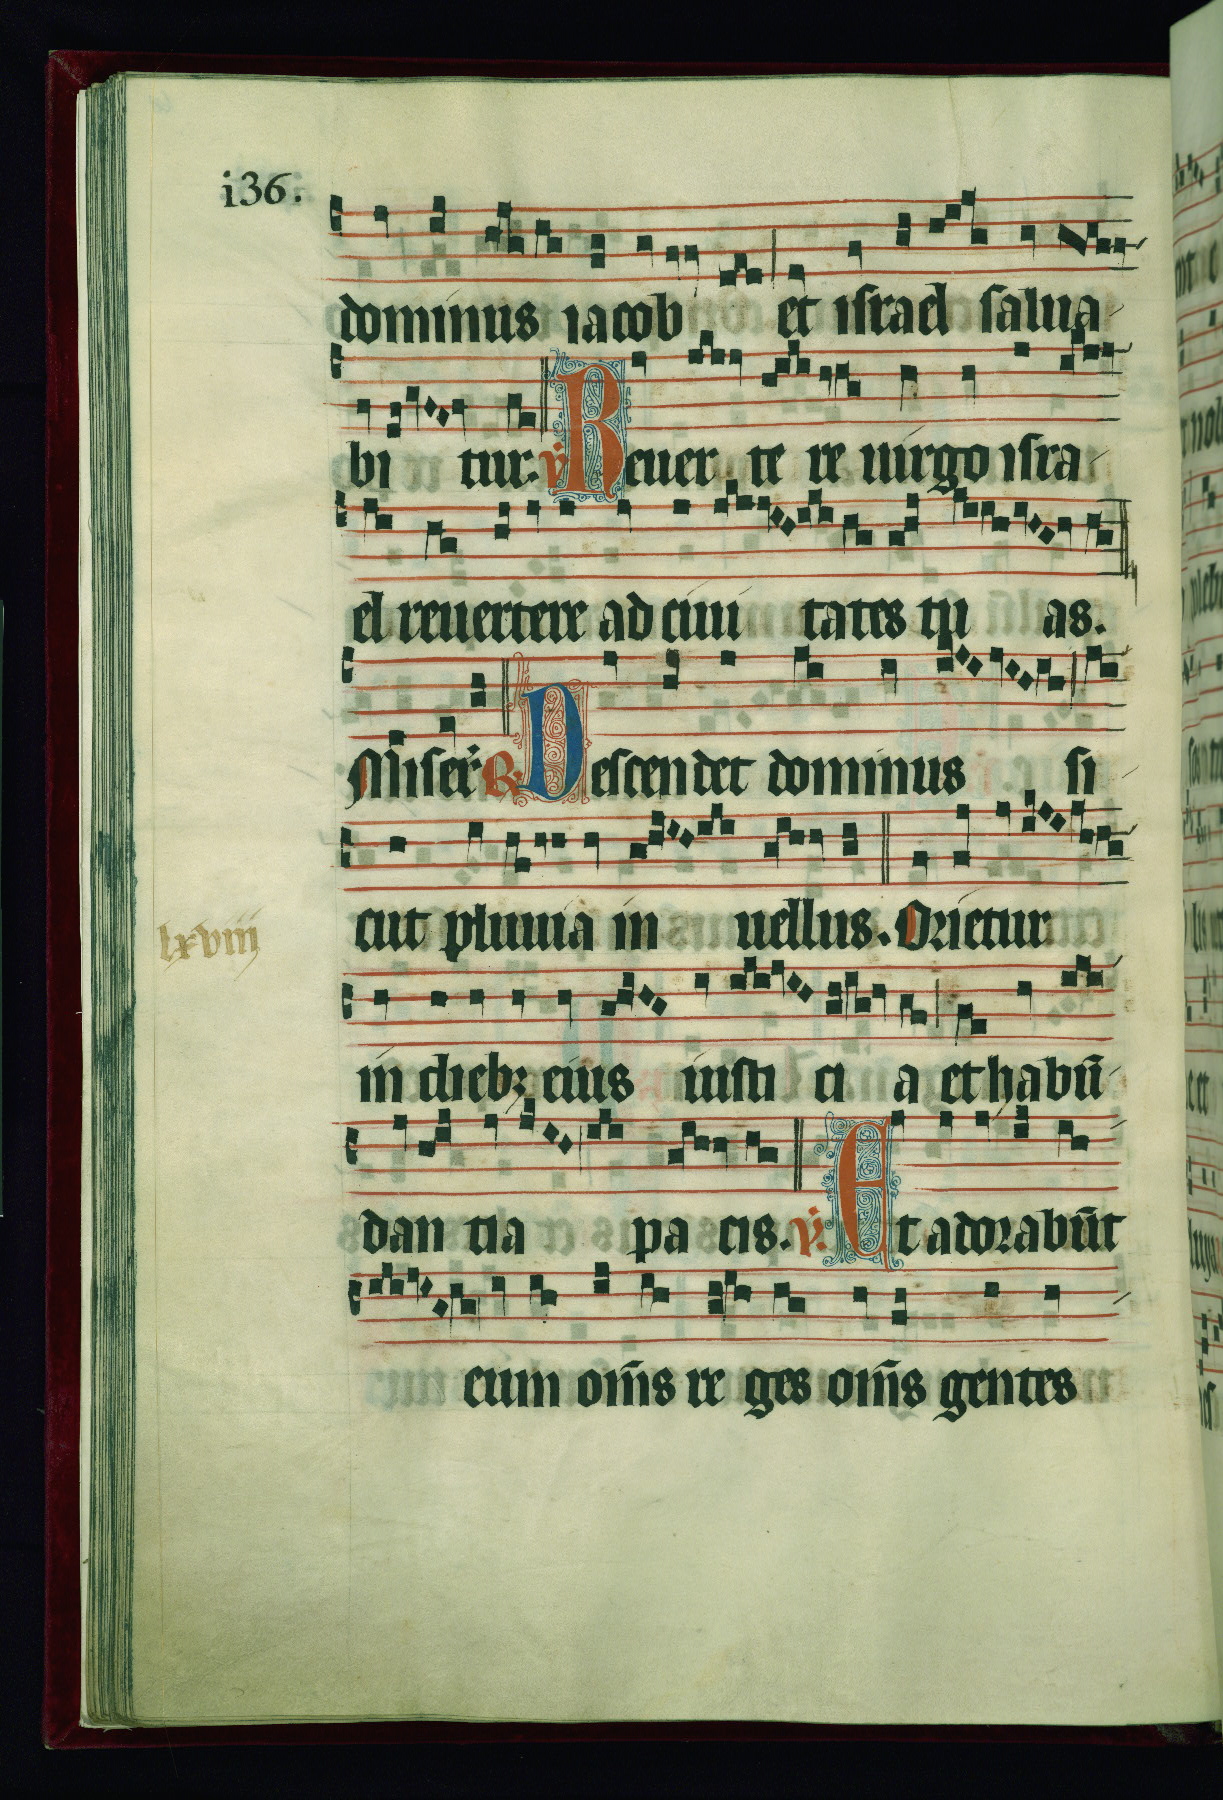 i36.
dominus iacob et israel salua
bi tur. ℣ Reuer te re uirgo isra
el reuertere ad ciui tates tu as.
Miser̄ ℟ Descendet dominus si
cut pluuia in uellus. Orietur
lxviii
in dieb; eius iusti ci a et habū
dan tia pa cis. ℣. Et adorabūt
eum om̄s re ges om̄s gentes